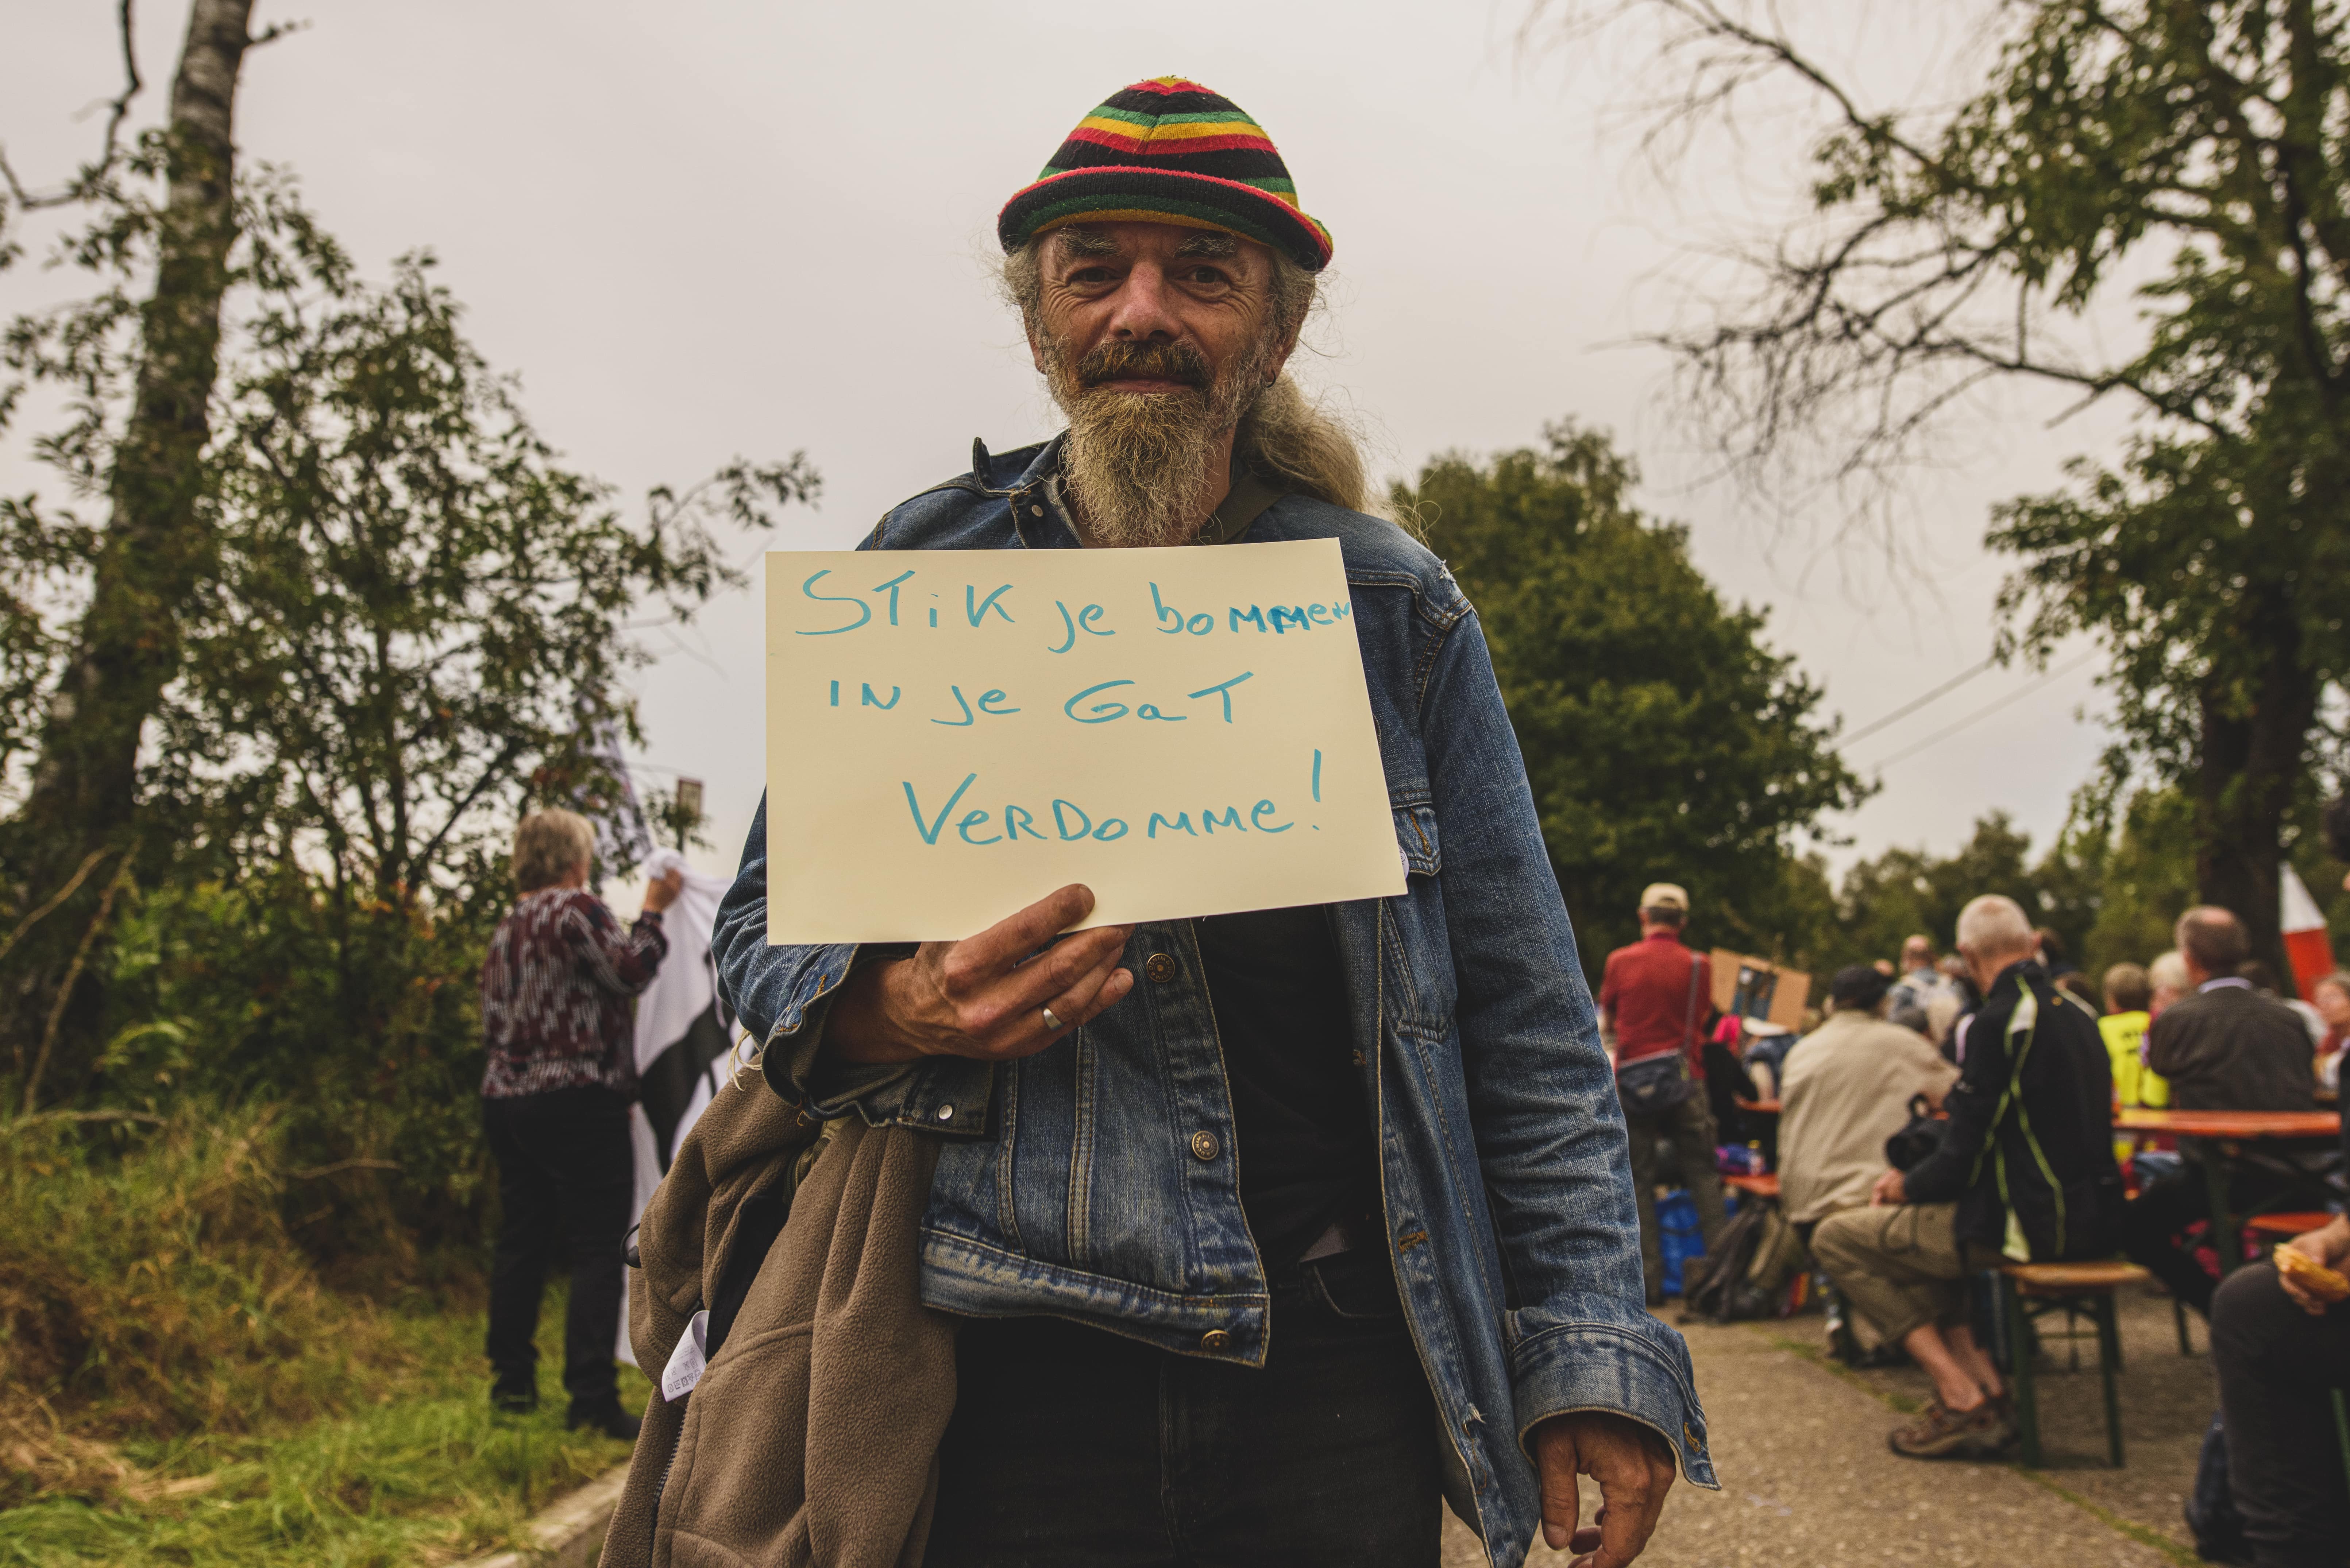 STiK je bommen
IN je GaT
VeRDoMMe!